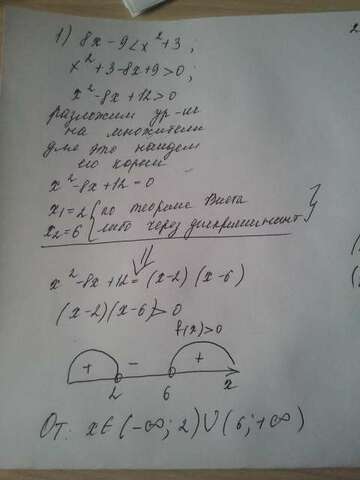 1) 8x - 9 < x² + 3;
x² + 3 - 8x + 9 > 0;
x² - 8x + 12 > 0
разложим ур-ие
на множители
для это найдем
его корни
x² - 8x + 12 = 0
x₁ = 2 { по теореме Виета
x₂ = 6 { либо через дискриминант }
⇓
x² - 8x + 12 = (x-2) (x-6)
(x-2)(x-6) > 0
f(x) > 0
+ - +
2 6 x
От: x∈(-∞; 2)∪(6; +∞)
2